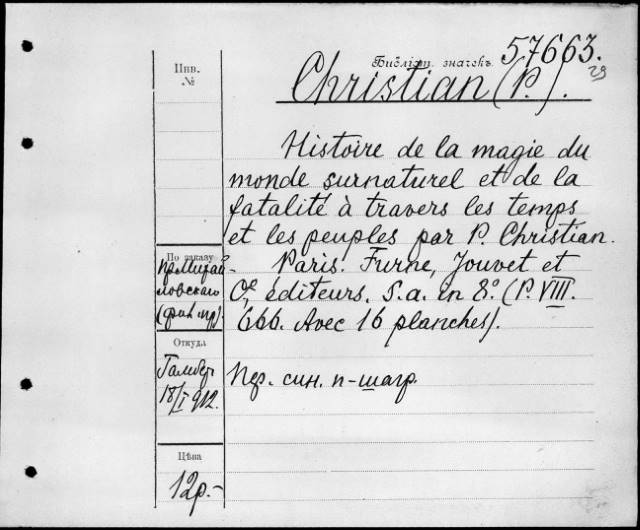 57663.
29
Библіот. значекъ
Инв.
№
Christian (P.).
Histoire de la magie du
monde surnaturel et de la
fatalité à travers les temps
et les peuples par P. Christian.
Paris. Furne, Jouvet et
Cie, éditeurs. S.a. in 8.° (P. VIII.
666. Avec 16 planches).
По заказу
пр. Михай-
ловскаго
Откуда
18/I 912.
Пер. син. п-шагр.
Цѣна
12р.-